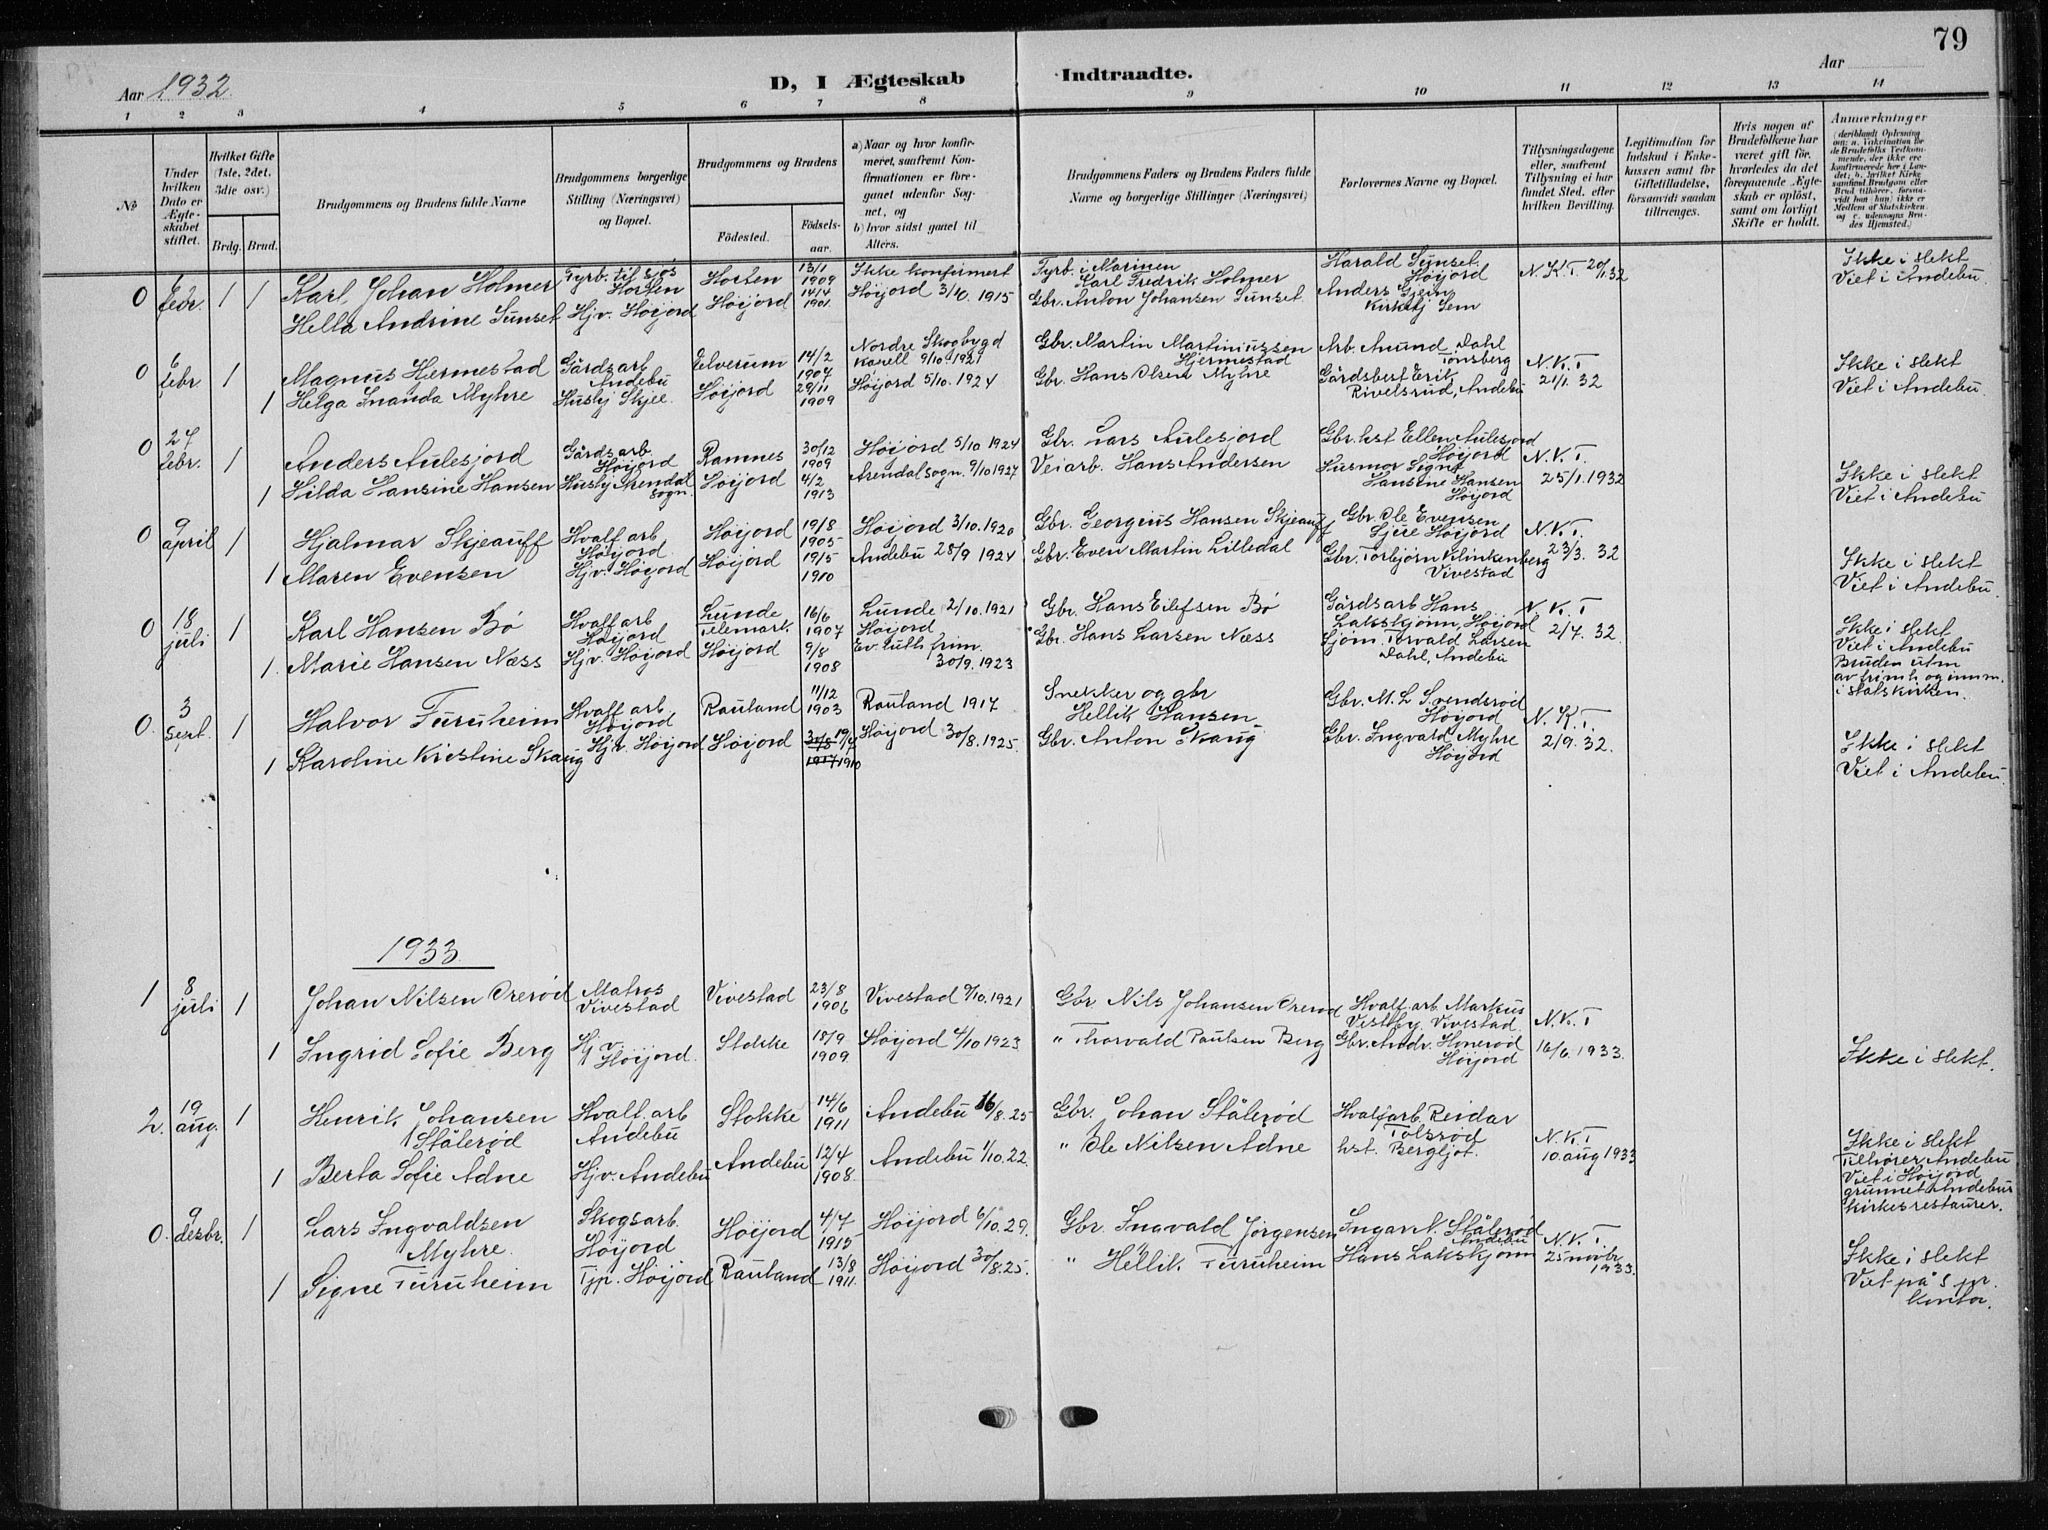 79
Aar 1932.
D, I Ægteskab Indtraadte.
Aar
1 2 3 4 5 6 7 8 9 10 11 12 13 14
No
Under hvilken Dato er Ægteskabet stiftet.
Hvilket Gifte (1ste, 2det, 3die osv.)
Brdg. Brud.
Brudgommens og Brudens fulde Navne
Brudgommens borgerlige Stilling (Næringsvei) og Bopæl.
Brudgommens og Brudens
Fødested. Fødselsaar.
a) Naar og hvor konfirmeret, saafremt Konfirmationen er foregaaet udenfor Sognet, og
b) hvor sidst gaaet til Alters.
Brudgommens Faders og Brudens Faders fulde Navne og borgerlige Stillinger (Næringsvei)
Forlovernes Navne og Bopæl.
Tillysningsdagene eller, saafremt Tillysning ei har fundet Sted, efter hvilken Bevilling.
Legitimation for Indskud i Enkekassen samt for Giftetilladelse, forsaavidt saadan tiltrænges.
Hvis nogen af Brudefolkene har været gift før, hvorledes da det foregaaende Ægteskab er opløst, samt om lovligt Skifte er holdt.
Anmerkninger
(deriblandt Oplysning om: a. Vakcination for de Brudefolks Vedkommende, der ikke ere konfirmerede her i Landet; b. hvilket Kirkesamfund Brudgom eller Brud tilhører, forsaavidt han (hun) ikke er Medlem af Statskirken, og c. udensogns Brudes Hjemsted.)
0 febr. 1 1 Karl Johan Holmer Fyrb. til sjøs Horten Horten 13/1 1909 Ikke konfirmert Fyrb. i Marinen Karl Fredrik Holmer Harald Sunset Høijord N. K. T. 20/1 32 Ikke i slekt
Hella Andrine Sunset Hjv. Høijord Høijord 14/4 1901. Høijord 3/10. 1915 Gbr. Anton Johansen Sunset Anders Gjein Kirketj Sem Viet i Andebu
0 6 febr. 1 Magnus Hjermestad Gårdsarb Andebu Elverum 14/2 1904 Nordre Skogbygd Kapell 9/10 1921 Gbr. Martin Martiniussen Hjermestad Arb. Amund Dahl Tønsberg N. K. T Ikke i slekt
1 Helga Inanda Myhre Hushj Skjee. Høijord 29/11 1909 Høijord 5/10. 1924 Gbr. Hans Olsen Myhre Gårdsbest Erik Rivelsrud, Andebu 21/1. 32 Viet i Andebu.
0 27 febr. 1 Anders Aulesjord Gårdsarb Høijord Ramnes 30/12 1909 Høijord 5/10 1924 Gbr. Lars Aulesjord Gbr. hst Ellen Aulesjord Høijord N. K. T. Ikke i slekt
1 Hilda Hansine Hansen Hushj Arendal sogn. Høijord 4/2 1913 Arendal sogn. 9/10 1927 Veiarb. Hans Andersen Husmor Signe Hansine Hansen Høijord 25/1. 1932 Viet i Andebu
0 9 april 1 Hjalmar Skjeauff Hvalf arb Høijord Høijord 19/8 1905 Høijord 3/10. 1920 Gbr. Georgius Hansen Skjeauff Gbr. Ole Evensen Gjere Høijord N. K. T. Ikke i slekt
1 Maren Evensen Hjv. Høijord Høijord 19/5 1910 Andebu 28/9 1924 Gbr. Even Martin Lilledal Gbr. Torbjørn Klinkenberg Vivestad 23/3. 32 Viet i Andebu.
0 18 juli 1 Karl Hansen Bø Hvalf arb Høijord Lunde Telemark. 16/6 1907 Lunde 2/10. 1921 Gbr. Hans Eilefsen Bø Gårdsarb Hans Lakskjønn, Høijord N. K. T Ikke i slekt Viet i Andebu
1. Marie Hansen Næss Hjv. Høijord Høijord 9/8 1908 Høijord Ev. luth frim. 30/9. 1923 Gbr. Hans Larsen Næss Sjøm. Torvald Larsen Dahl, Andebu 2/7. 32. Bruden utm av frimh og innm. i statskirken.
0. 3 Sept. 1 Halvor Furuheim Hvalf arb Høijord Rauland 11/12 1903 Rauland 1917 Snekker og gbr Hellik Hansen Gbr. M. L Svendsrød Høijord N. K. T. Ikke i slekt
1 Karoline Kristine Skaug Hjv. Høijord Høijord 30/8 19/7 1917 1910 Høijord 30/8. 1925. Gbr. Anton Skaug Gbr. Ingvald Myhre Høijord 2/9. 32. Viet i Andebu.
1933
1 8 juli 1 Johan Nilsen Orerød Matros Vivestad Vivestad 23/8 1906 Vivestad 9/10. 1921 Gbr Nils Johansen Orerød Hvalf arb Markus Vestby, Vivestad N. K. T
1 Ingrid Sofie Berg Hjv. Høijord. Stokke 18/9 1909. Høijord 4/10 1923 " Thorvald Paulsen Berg Gbr. Andr. Honerød Høijord 16/6. 1933. Ikke i slekt.
2. 19 aug. 1 Henrik Johansen Stålerød Hvalf. arb Andebu Stokke 14/6 1911 Andebu 16/8. 25 Gbr. Johan Stålerød Hvalfarb Reidar Tolsrød N. K. T Ikke i slekt Tilhører Andebu
1 Berta Sofie Adne Hjv. Andebu Andebu 12/4 1908. Andebu 1/10. 22. " Ole Nilsen Adne hst. Bergljot. 10. aug 1933 Viet i Høijord grunnet Andebu kirkes restaurer.
0. 9 desbr. 1 Lars Ingvaldsen Myhre. Skogsarb. Høijord Høijord 4/7 1915 Høijord 6/10. 29. Gbr. Ingvald Jørgensen Ingar N. Stålerød Andebu N. K. T. Ikke i slekt
1 Signe Furuheim Tjp. Høijord Rauland 13/8 1911. Høijord 30/8. 25. " Hellik Furuheim Hans Lakskjønn 25 novbr 1933. Viet på s pr. kontor.